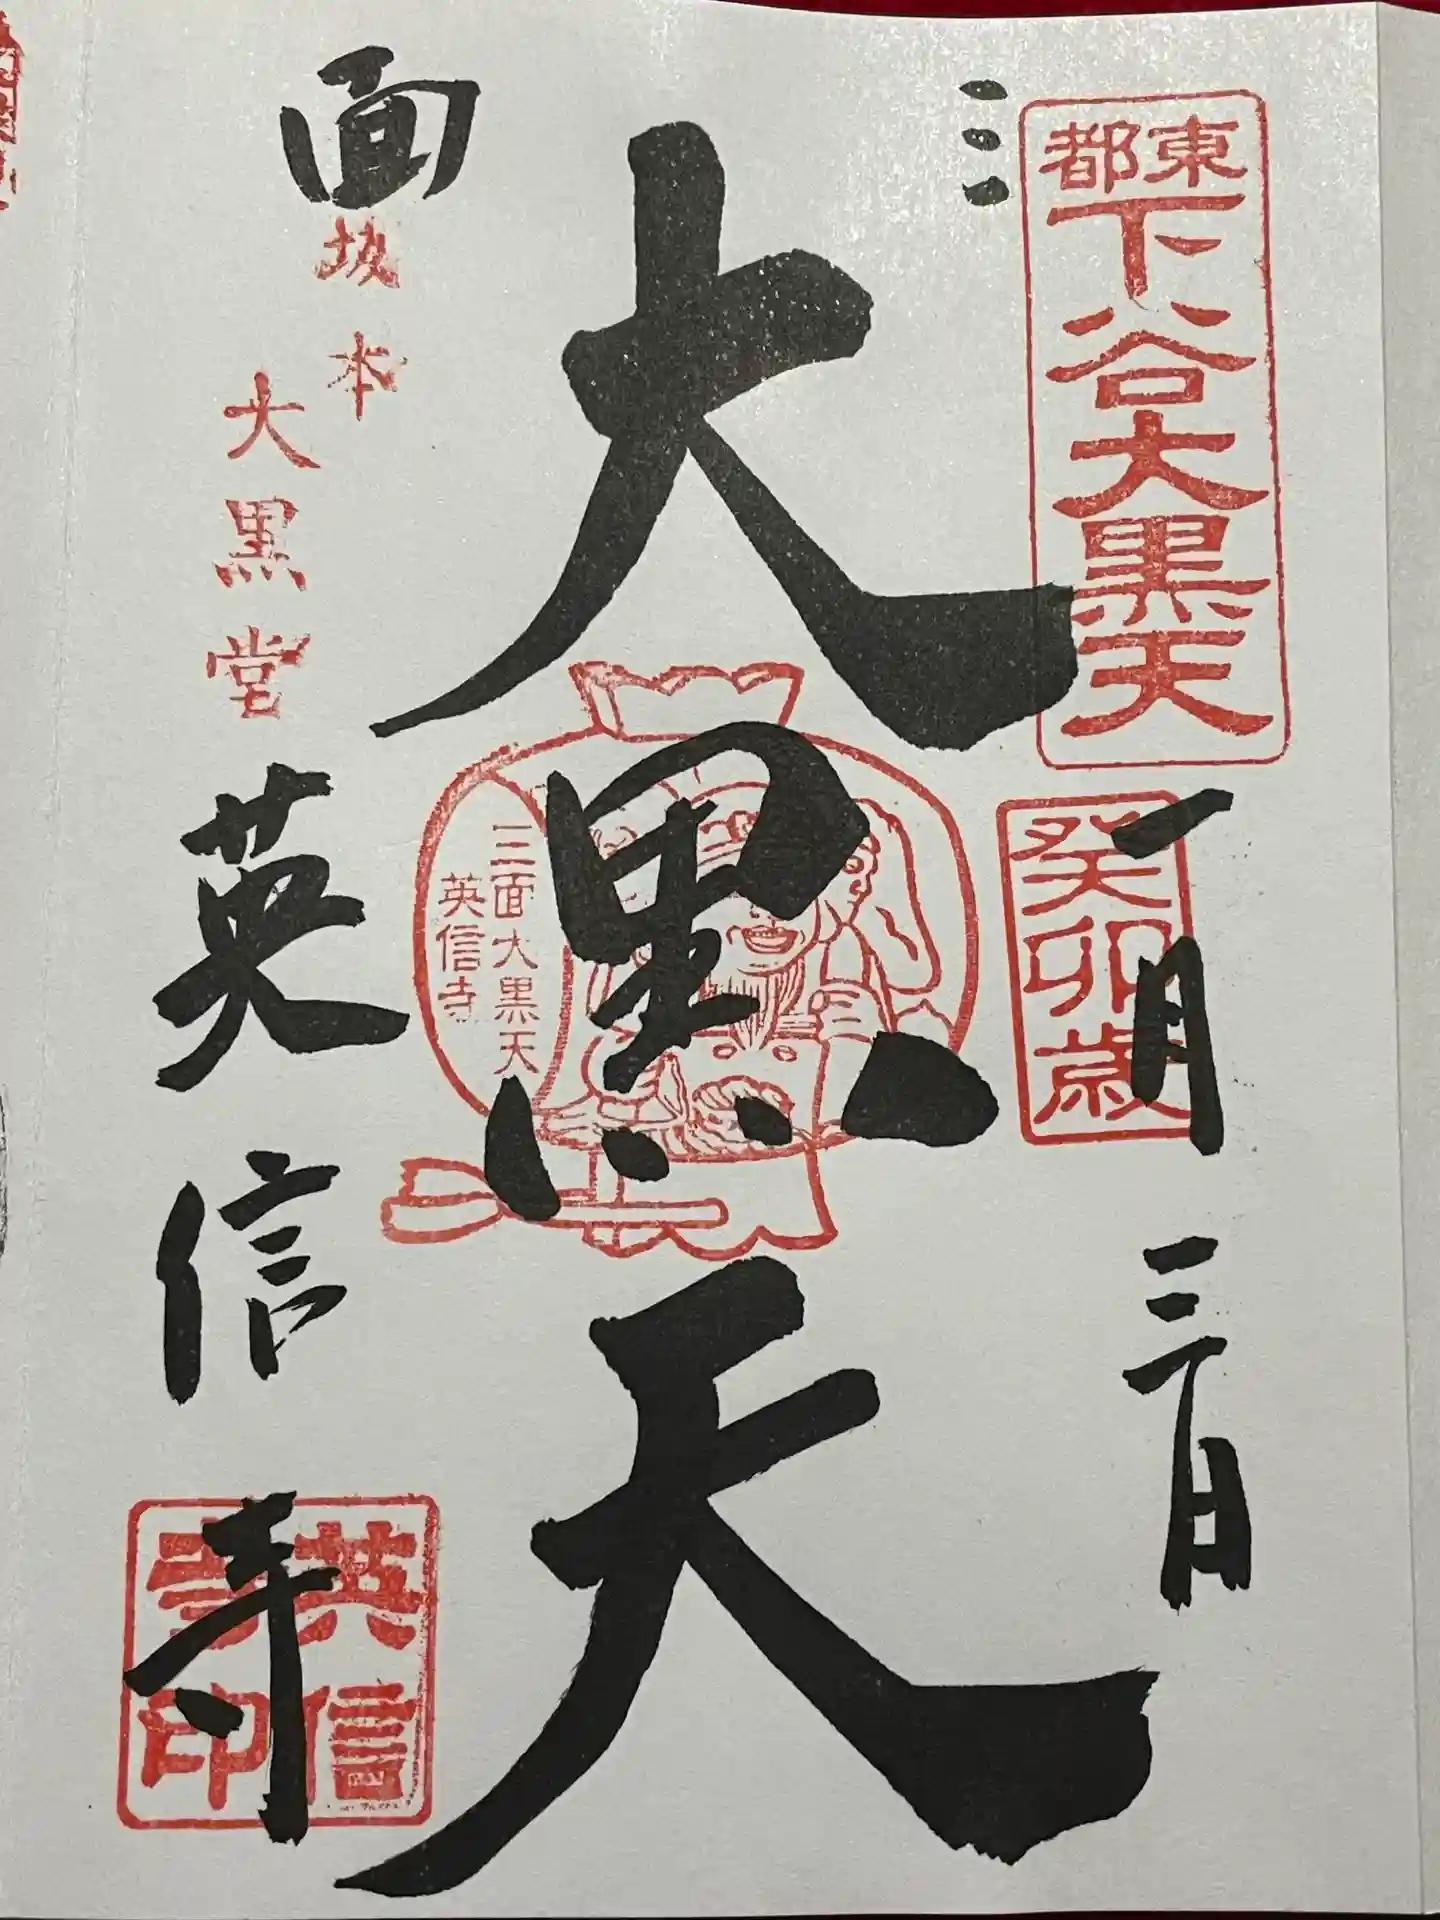 三面
東都
下谷大黒天
癸卯歳
一月三日
大黒天
三面大黒天
英信寺
坂本
大黒堂
英信寺
英信寺印